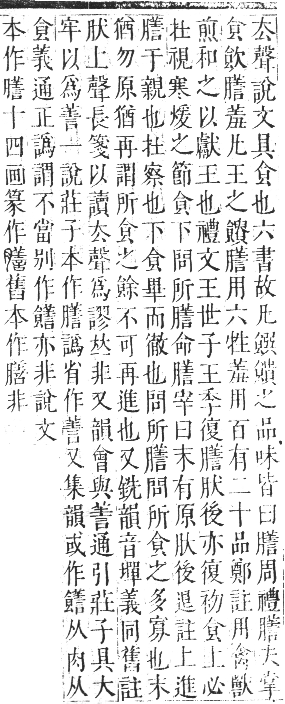 去聲說文具食也六書故凡饌饋之品味皆曰膳周禮膳夫掌
食飲膳羞凡王之饋膳用六牲羞用百有二十品鄭註用禽獸
煎和之以獻王也禮文王世子王季復膳肰後亦復初食上必
在視寒煖之節食下問所膳命膳宰曰末有原肰後退註上進
膳于親也在察也下食畢而徹也問所膳問所食之多寡也末
猶勿原猶再謂所食之餘不可再進也又銑韻音墠義同舊註
肰上聲長箋以讀去聲爲謬𠀤非又韻會與善通引莊子具大
牢以爲善一說莊子本作膳譌省作善又集韻或作饍从肉从
食義通正譌謂不當別作饍亦非說文
本作膳十四画篆作膳舊本作膳非